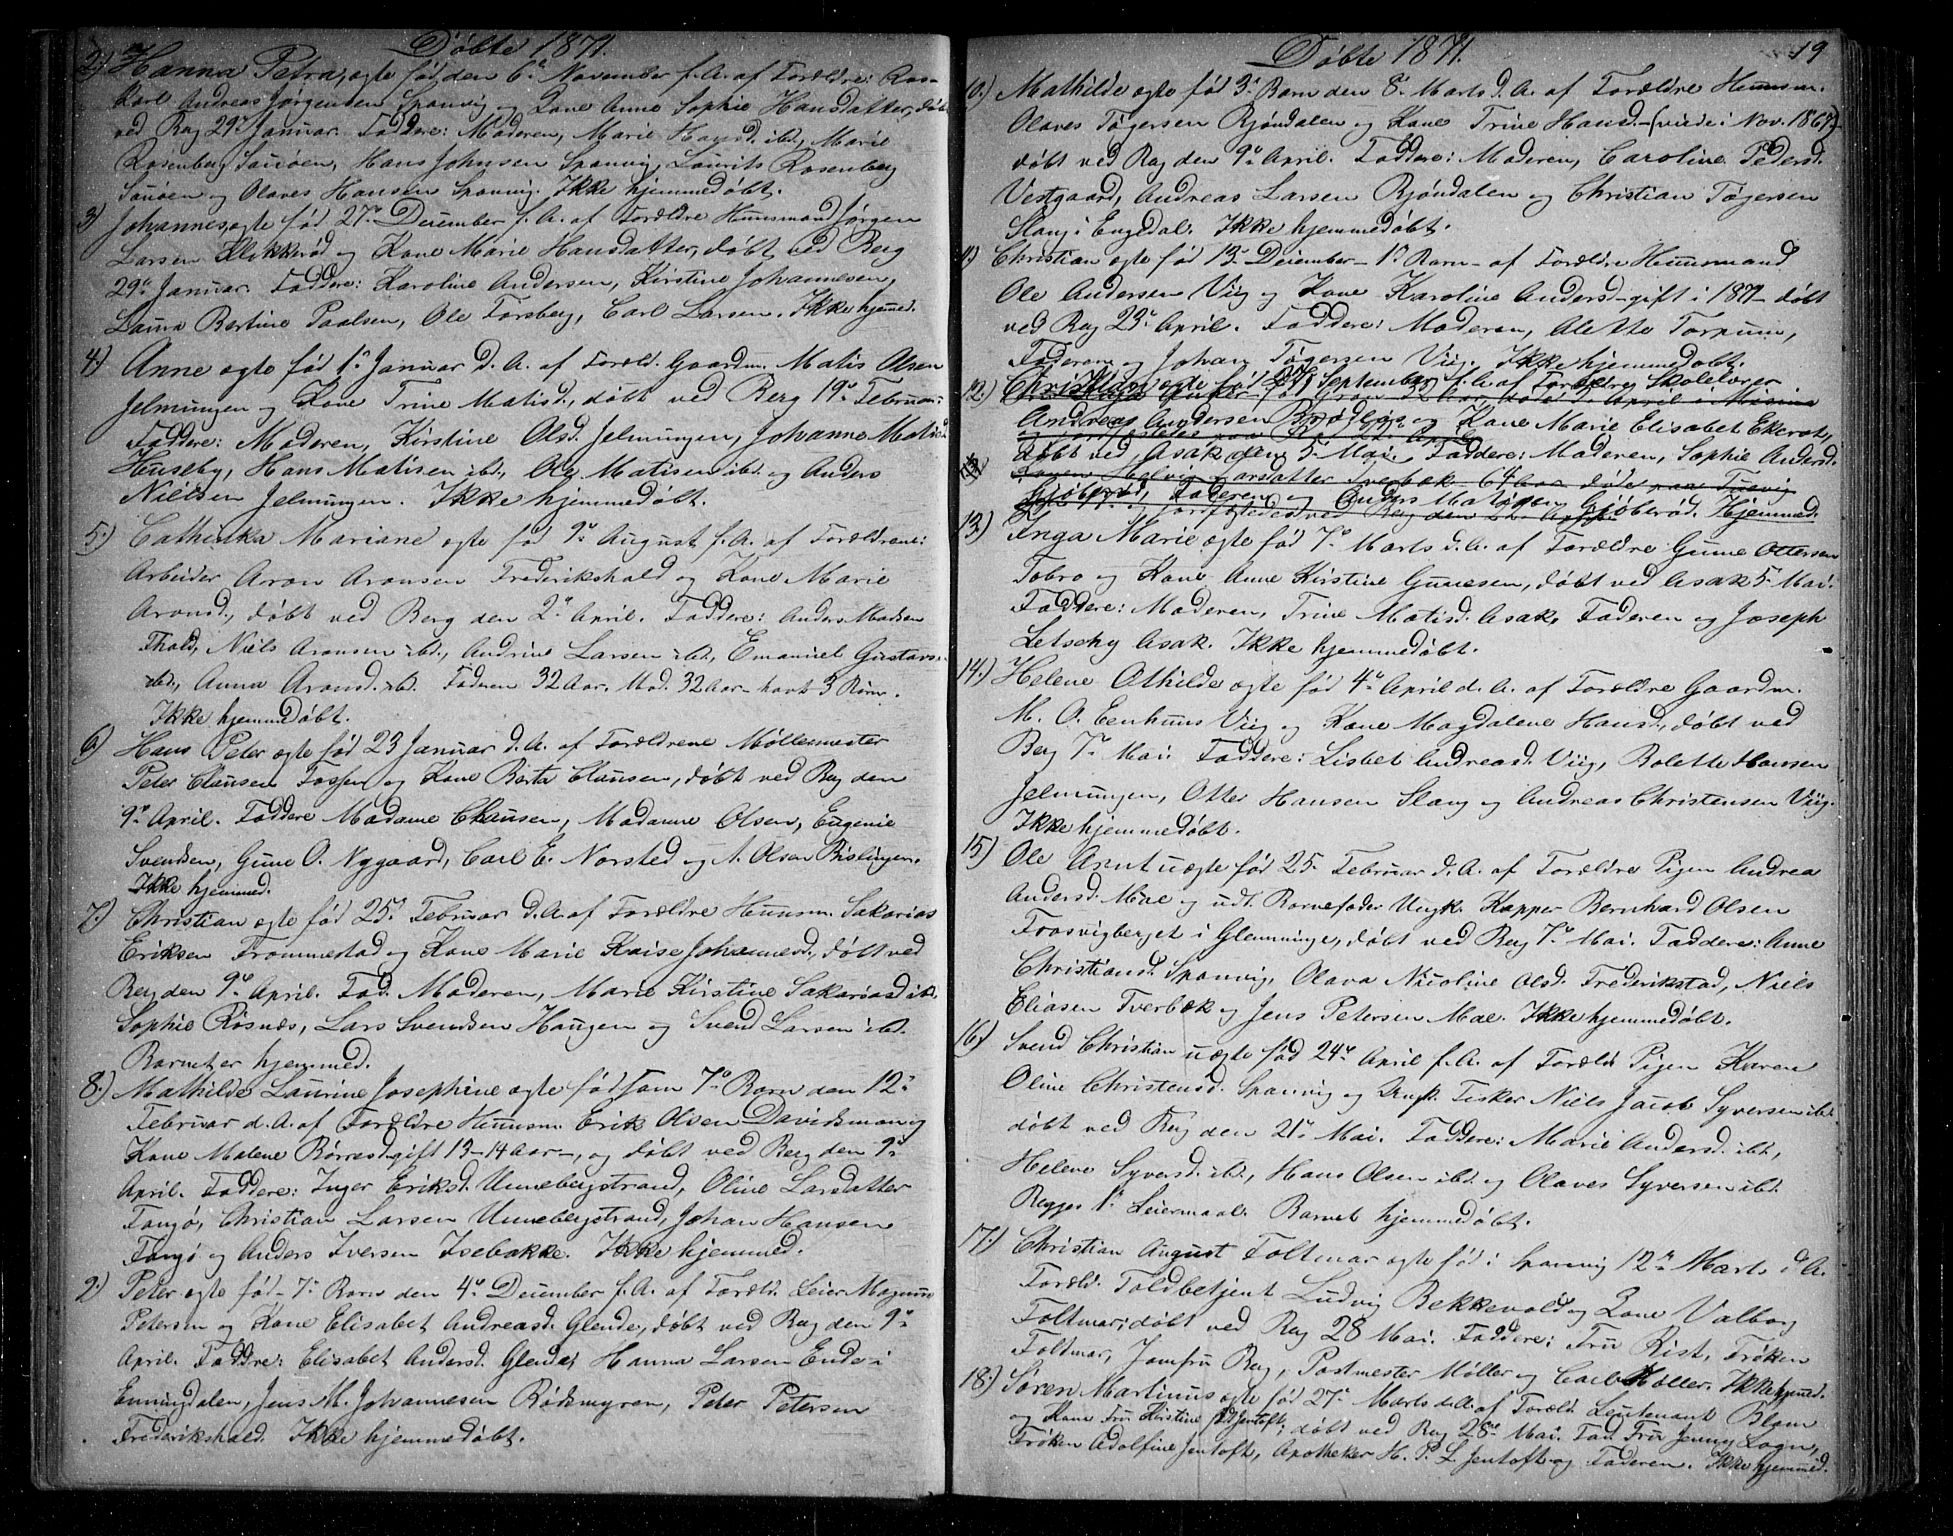 Døbte 1871.
2) Hanna Petra, ægte fød den 6te November f. A. af Forældre:
Karl Andreas Jørgensen Sponvig og Kone Anne Sophie Hansdatter, døbt
ved Berg 29de Januar. Faddere: Moderen, Marie Hansd. ibd., Marie
Rosenberg Sauøen, Hans Johnsen Sponvig, Laurits Rosenberg
Sauøen og Olaves Hansen Sponvig. Ikke hjemmedøbt.
3) Johannes, ægte fød 27de December f. A. af Forældre Huusmand Jørgen
Larsen Klikkerød og Kone Marie Hansdatter, døbt ved Berg
29de Januar. Faddere: Karoline Andersen, Kirstine Johannesen,
Laura Bertine Paalsen, Ole Forsberg, Carl Larsen. Ikke hjemmed.
4) Anne ægte fød 1ste Januar d. A. af Foræld. Gaardm. Matis Olsen
Jelmungen og Kone Trine Matisd., døbt ved Berg 19de Februar.
Faddere: Moderen, Kirstine Olsd. Jelmungen, Johanne Matisd.
Huseby, Hans Matisen ibd., Ole Matisen ibd. og Anders
Nielsen Jelmungen. Ikke hjemmedøbt.
5) Cathinka Mariane ægte fød 9de August f. A. af Forældrene:
Arbeider Aron Aronsen Frederikshald og Kone Marie
Aronsd., døbt ved Berg den 2den April. Faddere: Anders Madsen
Fhald, Niels Aronsen ibd., Andrine Larsen ibd., Emanuel Gustavs.
ibd., Anna Aronsd. ibd. Faderen 32 Aar. Mod. 32 Aar – havt 3 Børn.
Ikke hjemmedøbt.
6) Hans Peter ægte fød 23 Januar d. A. af Forældrene Møllemester
Peter Clausen Fossen og Kone Berta Clausen, døbt ved Berg den
9de April. Faddere Madame Clausen, Madame Olsen, Eugenie
Svendsen, Gune O. Nygaard, Carl E. Norsted og A. Olsen Bislingen.
Ikke hjemmed.
7.) Christian ægte fød 25de Februar d. A. af Forældre Huusm. Sakarias
Eriksen Trommestad og Kone Marie Kaise Johannesd., døbt ved
Berg den 9de April. Fad. Moderen, Marie Kirstine Sakariasd. ibd.,
Sophie Røsnæs, Lars Svendsen Haugen og Svend Larsen ibd.
Barnet er hjemmed.
8.) Mathilde Laurine Josephine ægte fød som 7de Barn den 12te
Februar d. A. af Forældre Huusm. Erik Olsen Davidsman og
Kone Malene Børresd. – gift 13–14 Aar –, og døbt ved Berg den 9de
April. Faddere: Inger Eriksd. Unnebergstrand, Oline Larsdatter
Tangø, Christian Larsen Unnebergstrand, Johan Hansen
Tangø og Anders Iversen Isebakke. Ikke hjemmed.
9.) Peter ægte fød – 7de Barn den 4de December f. A. af Foræld. Leier Magnus
Petersen og Kone Elisabet Andreasd. Glende, døbt ved Berg den 9de
April. Faddre: Elisabet Andersd. Glende, Hanna Larsen Ende i
Enningdalen, Jens M. Johannesen Rødsmyren, Peter Petersen
Frederikshald. Ikke hjemmedøbt.
Døbte 1871.
19
10.) Mathilde ægte fød 3de Barn den 8de Marts d. A. af Forældre Huusm.
Olaves Tøgersen Bjøndalen og Kone Trine Hansd. – (viede i Nov. 1867) –
døbt ved Berg den 9de April. Faddere: Moderen, Caroline Pedersd.
Vestgaard, Andreas Larsen Bjøndalen og Christian Tøgersen
Slang i Engedal. Ikke hjemmedøbt.
11) Christian ægte fød 13de December – 1ste Barn – af Forældre Huusmand
Ole Andersen Viig og Kone Karoline Andersd. – gift i 1870 – døbt
ved Berg 23de April. Faddere: Moderen, Alette Torpum,
Faderen og Johan Tøgersen Viig. Ikke hjemmedøbt.
12.) Christian ægte fød September f. A. af Forældre, Skolelærer
Andreas Andersen og Kone Marie Elisabet Ekerot,
døbt ved Asak den 5te Mai. Faddere: Moderen, Sophie Andersd.
Gjøberød, Faderen og Anders Matisen Gjøberød. Hjemmed.
13.) Inga Marie ægte fød 7de Marts d. A. af Forældre Gune Ottersen
Tobro og Kone Anne Kirstine Gunesen, døbt ved Asak 5te Mai.
Faddere: Moderen, Trine Matisd. Asak, Faderen og Joseph
Letschy Asak. Ikke hjemmedøbt.
14.) Helene Othilde ægte fød 4de April d. A. af Forældre Gaardm.
M. O. Eenhuus Viig og Kone Magdalene Hansd., døbt ved
Berg 7de Mai. Faddere: Lisbet Andreasd. Viig, Bolette Hansen
Jelmungen, Otter Hansen Slang og Andreas Christensen Viig.
Ikke hjemmedøbt.
15) Ole Arnt uægte fød 25 Februar d. A. af Forældre Pigen Andrea
Andersd. Mae og udl. Barnefader Ungk. Kapper Bernhard Olsen
Traasvigberget i Glemminge, døbt ved Berg 7de Mai. Faddere: Anne
Christiansd. Sponvig, Olava Nicoline Olsd. Frederikstad, Niels
Eliasen Tverbæk og Jens Petersen Mae. Ikke hjemmedøbt.
16) Svend Christian uægte fød 24de April f. A. af Foræld. Pigen Karen
Oline Christensd. Sponvig og Ungk. Fisker Niels Jacob Syversen ibd.
døbt ved Berg den 21de Mai. Faddere: Marie Andersd. ibd.,
Helene Syversd. ibd., Hans Olsen ibd. og Olaves Syversen ibd.
Begges 1ste Leiermaal. Barnet hjemmedøbt.
17.) Christian August Foltmar ægte fød i Sponvig 12te Marts d. A.
Foræld. Toldbetjent Ludvig Bekkevold og Kone Valborg
Foltmar, døbt ved Berg 28 Mai. Faddere: Fru Rist, Frøken
Foltmar, Jomfru Berg, Postmester Møller og Carl Møller. Ikke hjemmed.
18.) Søren Martinus ægte fød 27de Marts d. A. af Foræld. Leutenant Blom
og Kone Fru Kirstine Jentoft; døbt ved Berg 28de Mai. Fad. Fru Jenny Sogn,
Frøken Adolfine Jentoft, Apotheker H. P. L. Jentoft og Faderen. Ikke hjemmed.